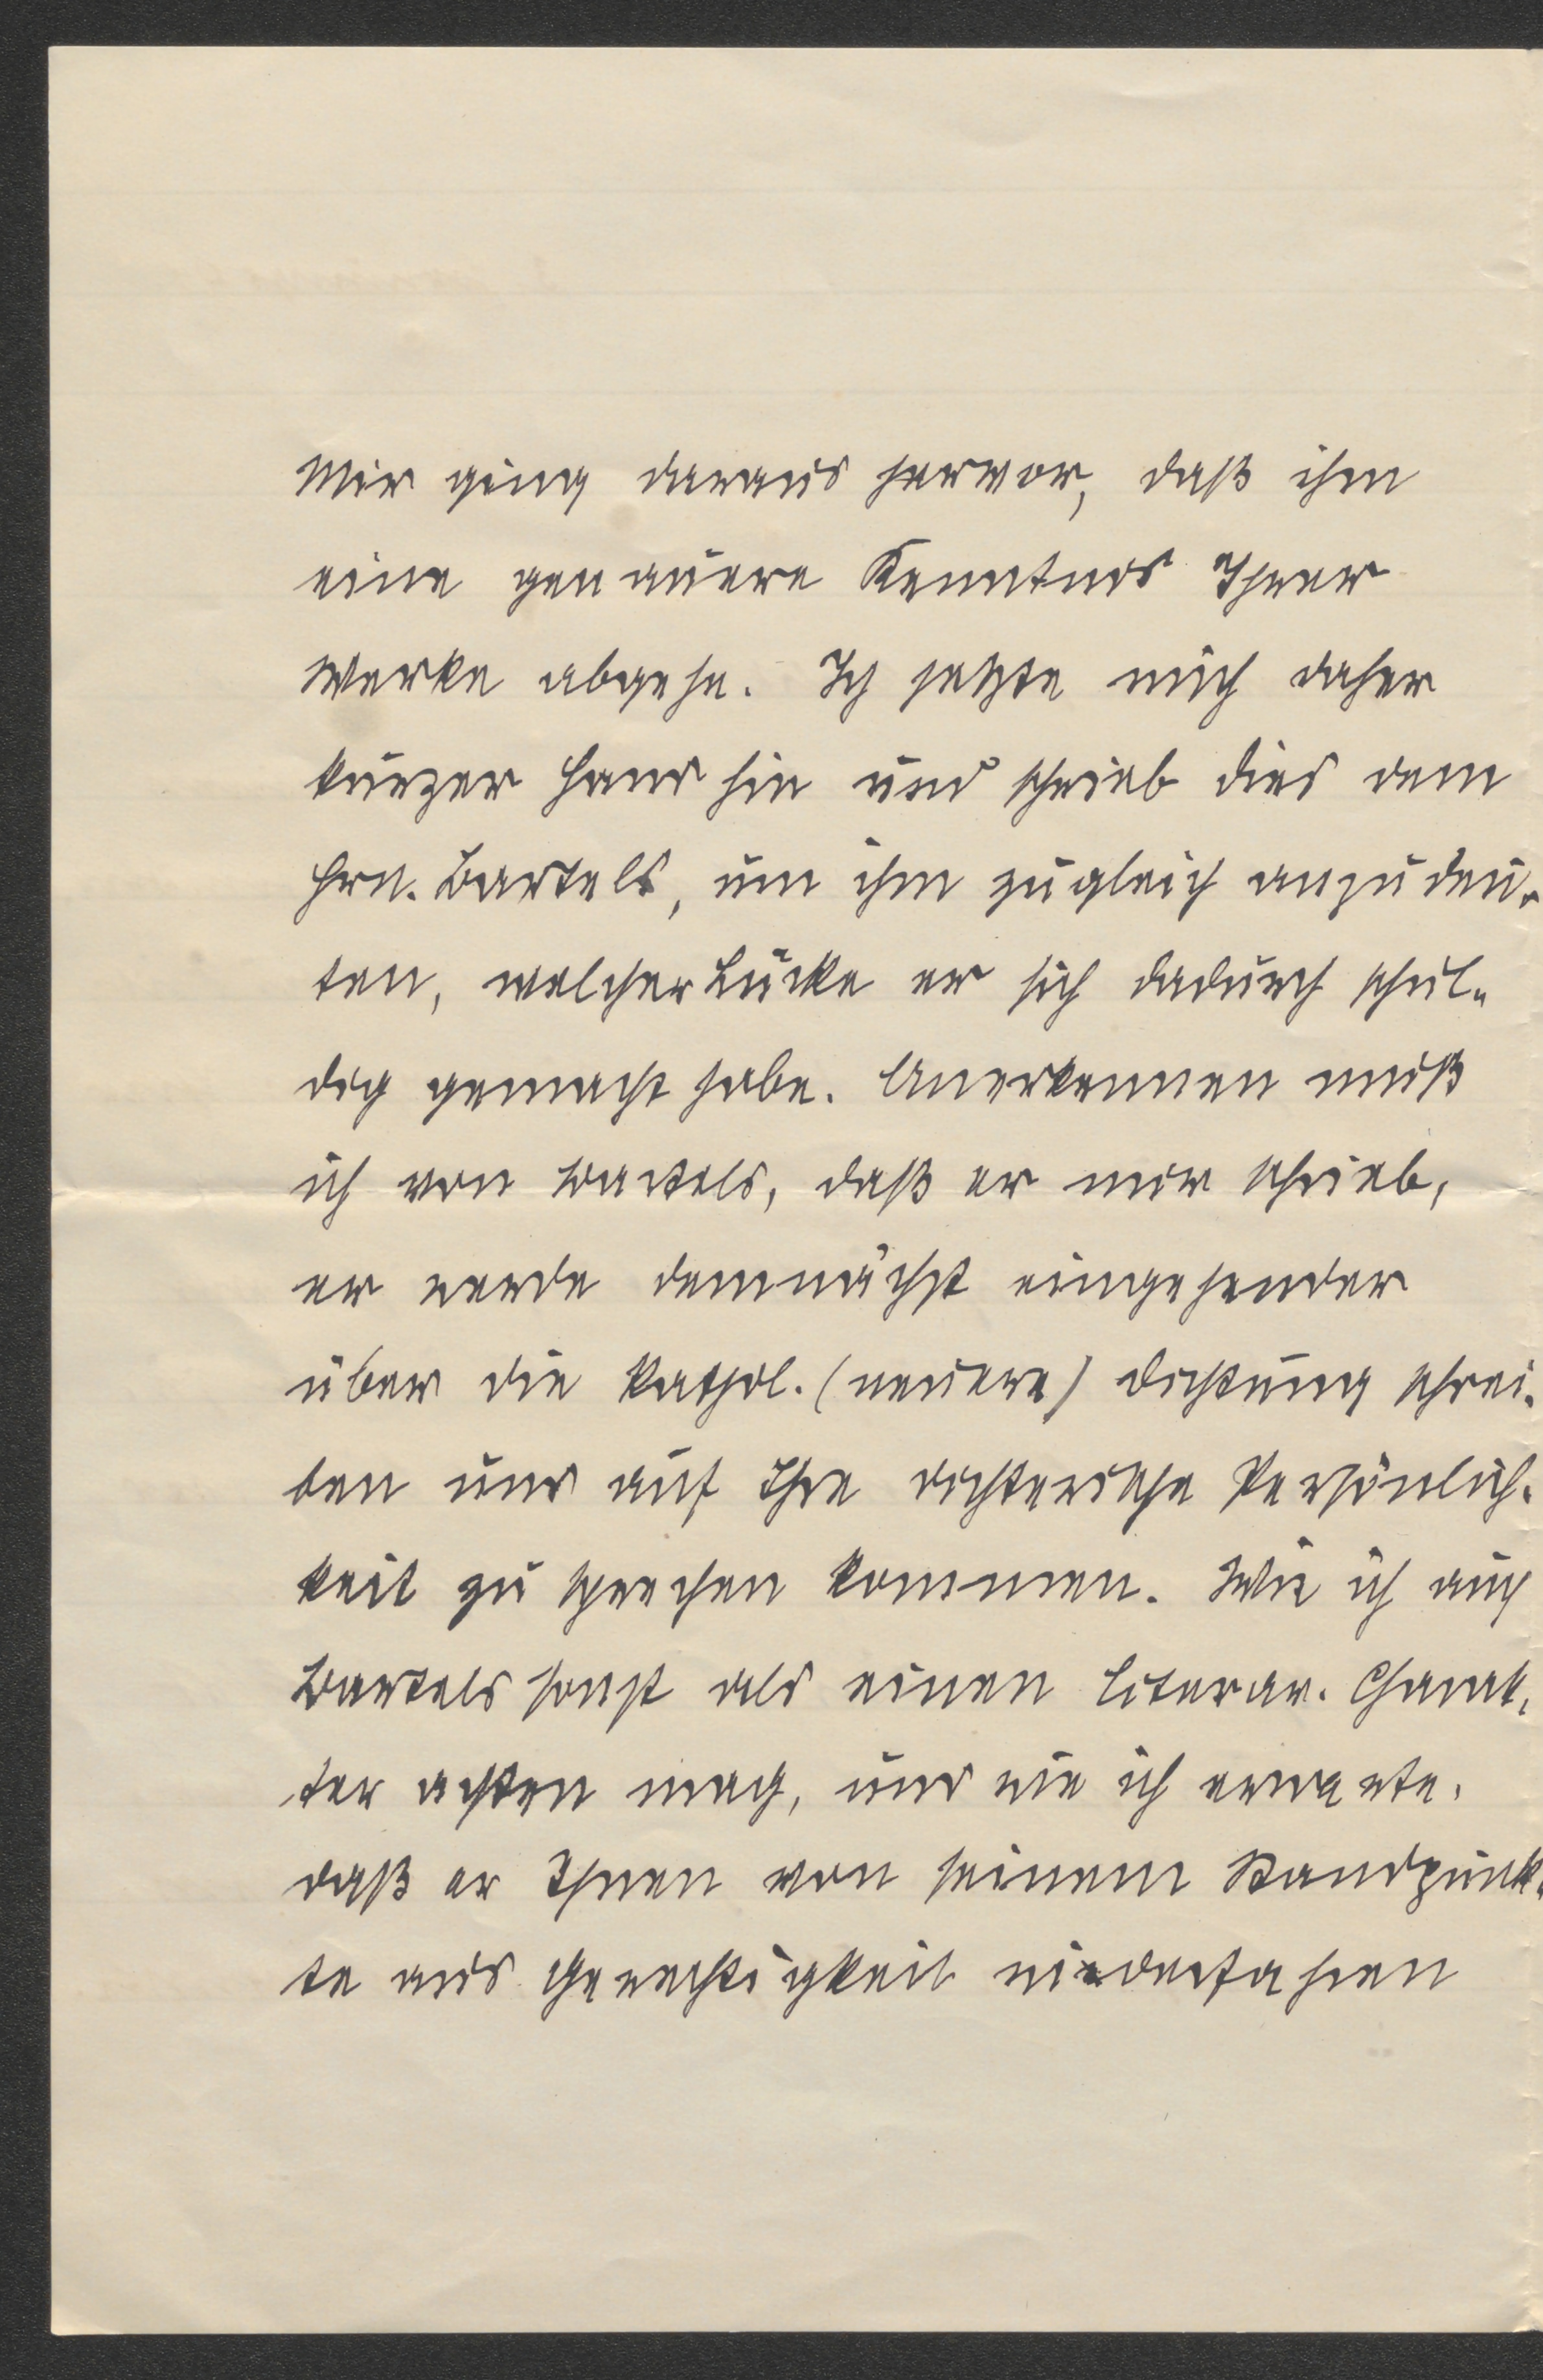 Mir ging daraus hervor, daß ihm
eine genauere Kenntnis Ihrer
Werke abgehe. Ich setzte mich daher
kurzer Hand hin und schrieb dies dem
Hrn. Bartels, um ihm zugleich anzudeu-
ten, welcher Lücke er sich dadurch schul-
dig gemacht habe. Anerkennen muß
ich von Bartels, daß er mir schrieb,
er werde demnächst eingehender
über die kathol. (neuere) Dichtung schrei-
ben und auf Ihre dichterische Persönlich-
keit zu sprechen kommen. Wie ich auch
Bartels sonst als einen literar. Charak-
ter achten mag, und wie ich erwarte,
daß er Ihnen von seinem Standpunk-
te aus Gerechtigkeit widerfahren